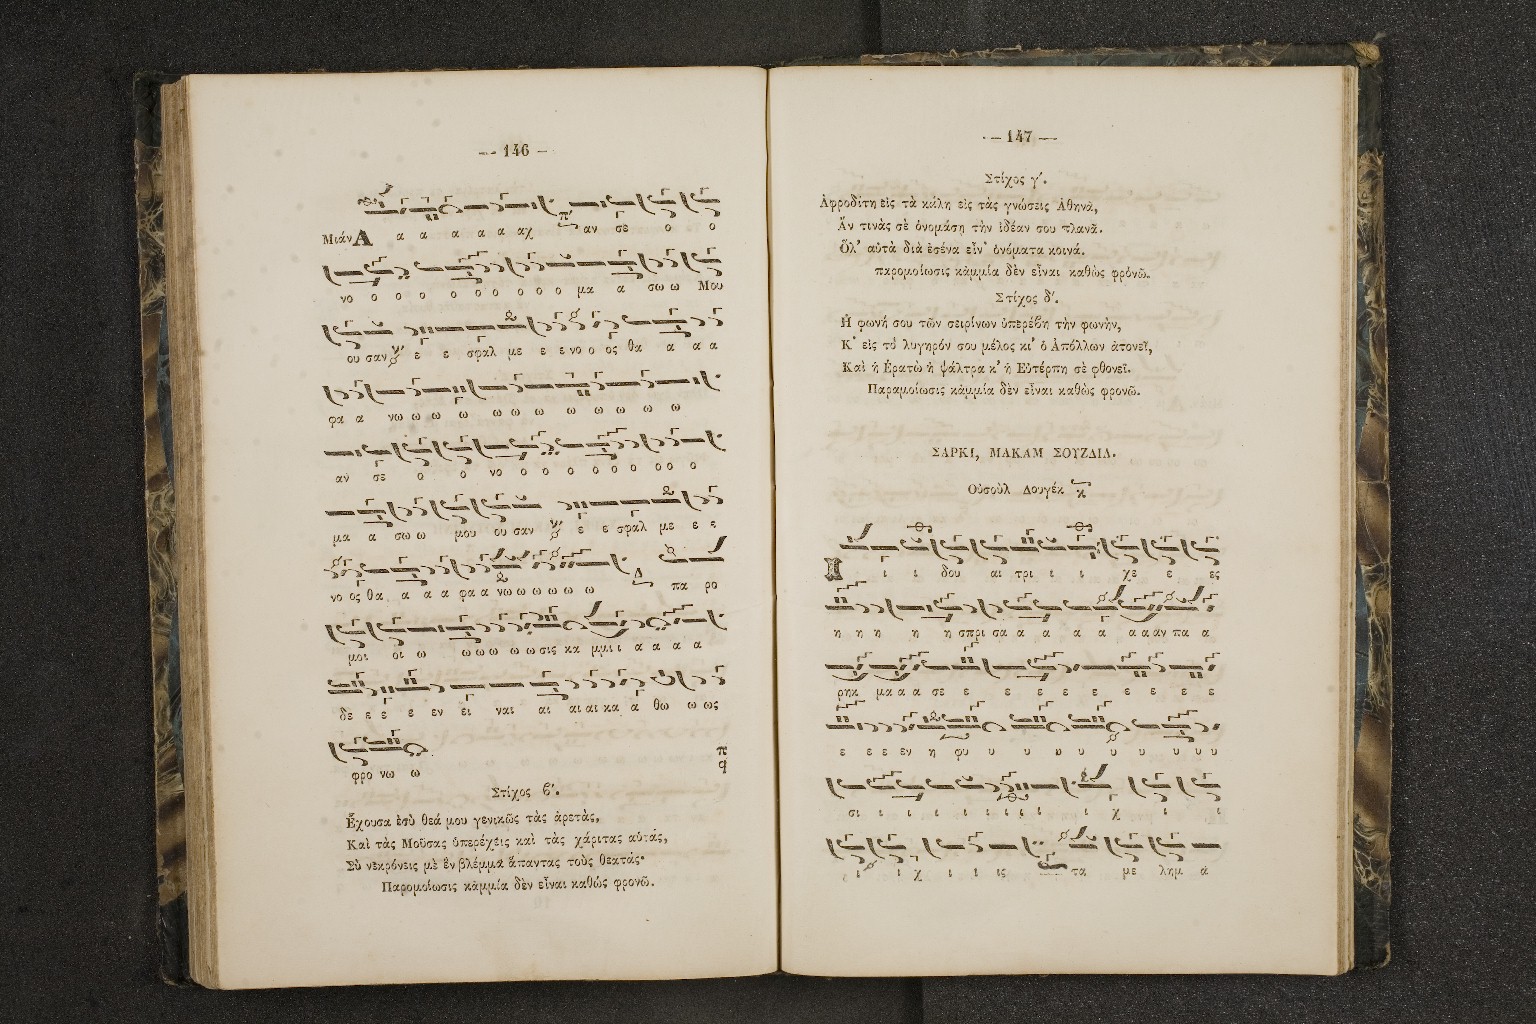 — 146 —
Μιάν Α α α α α α αχ αν σε ο ο
νο ο ο ο ο ο ο ο ο ο ο μα α σω ω Μου
ου σαν ε ε σφαλ με ε ε νο ο ος θα α α α
φα α νω ω ω ω ω ω ω ω ω ω ω ω
αν σε ο ο νο ο ο ο ο ο ο ο ο ο
μα α σω ω μου ου σαν ε ε σφαλ με ε ε
νο ος θα α α α φα α νω ω ω ω ω ω πα ρο
μοι οι ω ω ω ω ω ω σις κα μμι ι α α α α
δε ε ε ε εν εί ναι αι αι αι κα α θω ω ως
φρο νω ω
Στίχος β΄.
Ἔχουσα ἐσὺ θεά μου γενικῶς τὰς ἀρετὰς,
Καὶ τὰς Μοῦσας ὑπερέχεις καὶ τὰς χάριτας αὐτάς,
Σὺ νεκρόνεις μὲ ἓν βλέμμα ἅπαντας τοὺς θεατάς·
Παρομοίωσις κἀμμία δὲν εἶναι καθὼς φρονῶ.
— 147 —
Στίχος γ΄.
Ἀφροδίτη εἰς τὰ κάλη εἰς τὰς γνώσεις Ἀθηνᾶ,
Ἄν τινὰς σὲ ὀνομάση τὴν ἰδέαν σου πλανᾶ.
Ὅλ' αὐτὰ διὰ ἐσένα εἶν' ὀνόματα κοινά.
παρομοίωσις κἀμμία δὲν εἶναι καθὼς φρόνῶ.
Στίχος δ΄.
Ἡ φωνή σου τῶν σειρίνων ὑπερέβη τὴν φωνὴν,
Κ' εἰς τὸ λυγηρόν σου μέλος κι' ὁ Ἀπόλλων ἀτονεῖ,
Καὶ ἡ Ἐρατὼ ἡ ψάλτρα κ' ἡ Εὐτέρπη σὲ φθονεῖ.
Παραμοίωσις κἀμμία δὲν εἶναι καθὼς φρονῶ.
ΣΑΡΚΙ, ΜΑΚΑΜ ΣΟΥΖΔΙΛ.
Οὐσοὺλ Δουγέκ
Ι ι ι δου αι τρι ι ι χε ε ες
η η η η η σπρι σα α α α α α α α αν πα α
ρηκ μα α α σε ε ε ε ε ε ε ε ε ε ε
ε ε ε εν η φυ υ υ υ υ υ υ υ υ υ
σι ι ι ι ι ι ι ι ι ι χ ι ι
ι ι χ ι ι ις τα με λημ ά